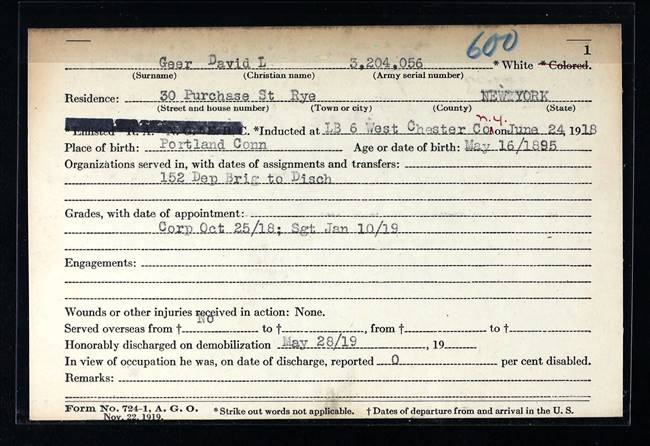 600
1
Geer David L 3,204,056 * White * Colored.
(Surname) (Christian name) (Army serial number)
Residence: 30 Purchase St Rye NEW YORK
(Street and house number) (Town or city) (County) (State)
N.Y.
*Enlisted R. A. N. G. E. R. C. *Inducted at LB 6 West Chester Co on June 24, 1918
Place of birth: Portland Conn Age or date of birth: May 16/1895
Organizations served in, with dates of assignments and transfers:
152 Dep Brig to Disch
Grades, with date of appointment:
Corp Oct 25/18; Sgt Jan 10/19
Engagements:
Wounds or other injuries received in action: None.
Served overseas from † No to †, from † to †
Honorably discharged on demobilization May 28/19, 19
In view of occupation he was, on date of discharge, reported 0 per cent disabled.
Remarks:
Form No. 724-1, A. G. O. *Strike out words not applicable. † Dates of departure from and arrival in the U. S.
Nov. 22, 1919.